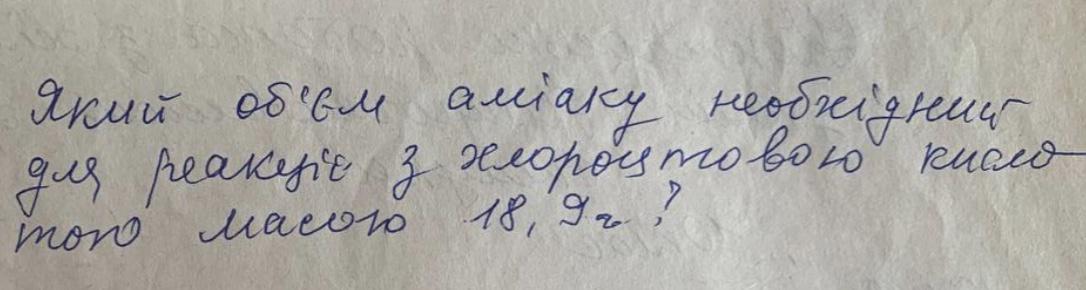 Який об'єм аміаку необхідний
для реакціє з хлороцтовою кисло-
тою масою 18,9г?